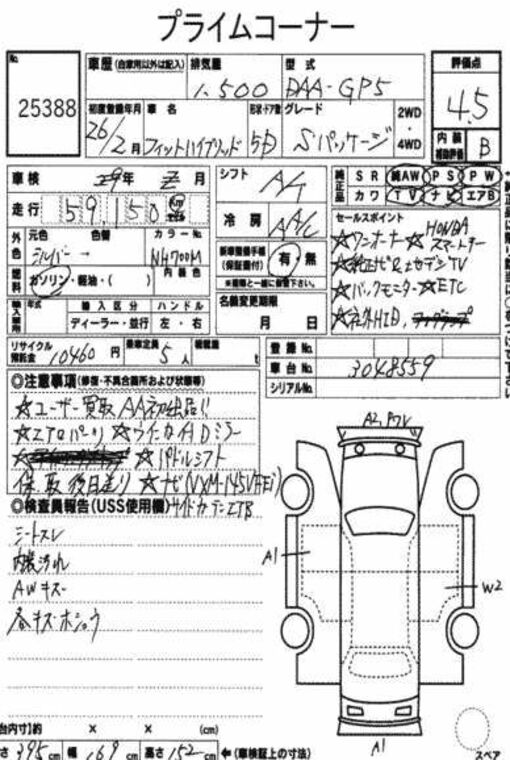 プライムコーナー
No.
25388
車歴(自家用以外は記入)
排気量
1,500
型式
DAA-GP5
評価点
4.5
初度登録年月
26/2月
車名
フィットハイブリッド
形状・ドア数
5D
グレード
Sパッケージ
2WD
・
4WD
内装
補助評価
B
車検
29年 2月
シフト
A/T
純正品
SR 純AW PS PW
カワ TV ナビ エアB
走行
59,150 km
冷房
AAC
セールスポイント
☆ワンオーナー☆HONDAスマートキー
☆純正ナビ&フルセグTV
☆バックモニター☆ETC
☆社外HID,
外色
元色 色替
シルバー →
カラーNo.
NH700M
新車整備手帳
(保証書付)
有・無
※車両と一緒に保管下さい!!
燃料
ガソリン・軽油・( )
内装色
名義変更期限
月 日
輸入車用
年式
輸入区分
ディーラー・並行
ハンドル
左・右
リサイクル預託金
10460 円
乗車定員
5人
積載量
t
登録No.
車台No.
3048559
シリアルNo.
◎注意事項(修復・不具合箇所および状態等)
☆ユーザー買取AA初出品!!
☆エアロパーツ ☆ウインカーHDミラー
☆パドルシフト
保、取 後日送り ☆ナビ(VXM-145VFEi)
◎検査員報告(USS使用欄)
サイドカーテンエアB
シートスレ
内装汚れ
AWキズ
各キズ・ホショウ
A2,Pワレ
A1
W2
A1
スペア
台内寸)約 × × (cm)
長さ 395 cm 幅 169 cm 高さ 152 cm ←(車検証上の寸法)